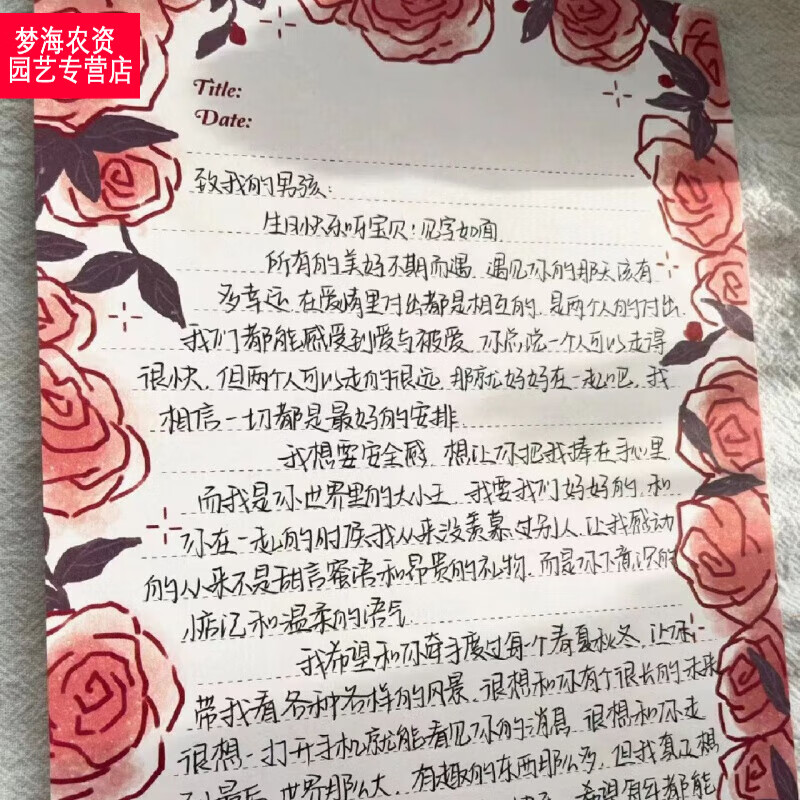 梦海农资
园艺专营店
Title:
Date:
致我的男孩:
生日快乐呀宝贝!见字如面
所有的美好不期而遇.遇见你的那天该有
多幸运.在爱情里付出都是相互的.是两个人的付出.
我们都能感受到爱与被爱.你总说一个人可以走得
很快.但两个人可以走的很远.那就好好在一起吧.我
相信一切都是最好的安排
我想要安全感.想让你把我捧在手心里.
而我是你世界里的大小王.我要我们好好的.和
你在一起的时候我从来没羡慕过别人.让我感动
的从来不是甜言蜜语和昂贵的礼物.而是你下意识的
惦记和温柔的语气
我希望和你牵手度过每一个春夏秋冬.让你
带我看各种各样的风景.很想和你有个很长的未来
很想一打开手机就能看见你的消息.很想和你走
到最后.世界那么大.有趣的东西那么多.但我真正想
希望每年都能